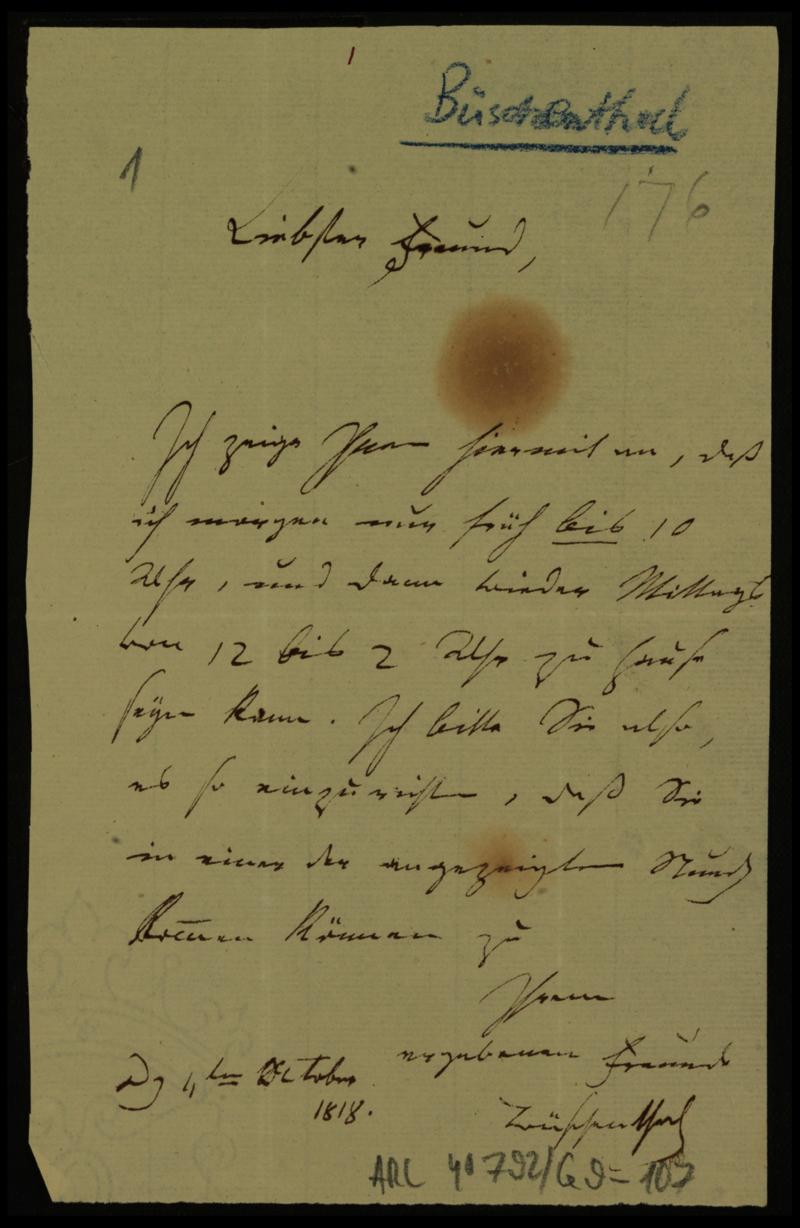 1
Büschenthal
1
176
Liebster Freund,
Ich zeige Ihnen hiermit an, daß
ich morgen nur früh bis 10
Uhr, und dann wieder Mittags
von 12 bis 2 Uhr zu Hause
seyn kann. Ich bitte Sie also,
es so einzurichten, daß Sie
in einer der angezeigten Stunden
kom̅en können zu
Ihrem
ergebenen Freunde
Büschenthal
D 4ten October
1818.
ARC 4° 792/
107